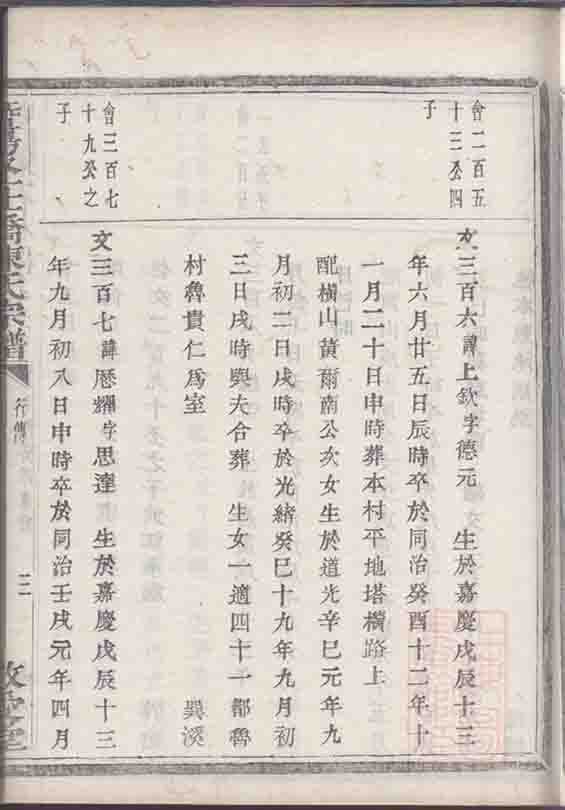 會二百五
十三公四
子
文三百六諱上欽字德元 生於嘉慶戊辰十三
年六月廿五日辰時卒於同治癸酉十二年十
一月二十日申時葬本村平地塔橫路上
配橫山黃爾南公次女生於道光辛巳元年九
月初二日戌時卒於光緒癸巳十九年九月初
三日戌時與夫合葬 生女一適四十一都魯
村魯貴仁爲室 巽溪
會三百七
十九公之
子
文三百七諱厯耀字思達 生於嘉慶戊辰十三
年九月初八日申時卒於同治壬戌元年四月
氏宗譜
行傳
三